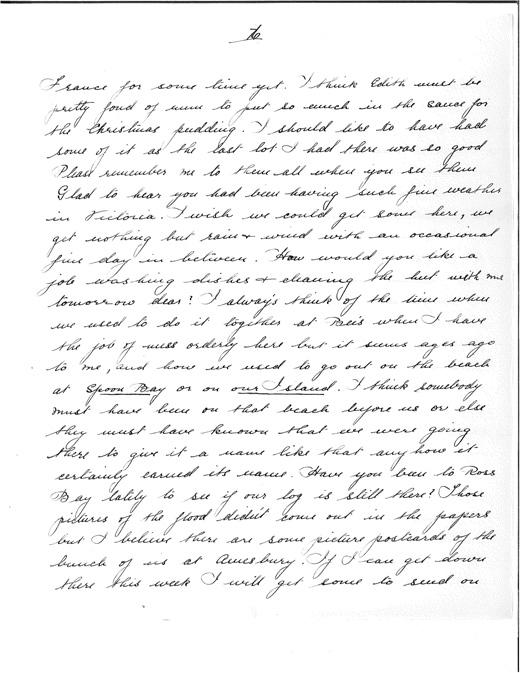 France for some time yet. I think Edith must be
pretty fond of rum to put so much in the sauce for
the Christmas pudding. I should like to have had
some of it as the last lot I had there was so good
Please remember me to them all when you see them
Glad to hear you had been having such fine weather
in Victoria. I wish we could get some here, we
get nothing but rain & wind with an occasional
fine day in between. How would you like a
job washing dishes & cleaning the hut with me
tomorrow dear? I always think of the time when
we used to do it together at when I have
the job of mess orderly here but it seems ages ago
to me, and how we used to go out on the beach
at Spoon Bay or on our Island. I think somebody
must have been on that beach before us or else
they must have known that we were going
there to give it a name like that any how it
certainly earned its name. Have you been to Ross
Bay lately to see if our log is still there? Those
pictures of the flood didn't come out in the papers
but I believe there are some picture postcards of the
bunch of us at Amesbury. If I can get down
there this week I will get some to send on